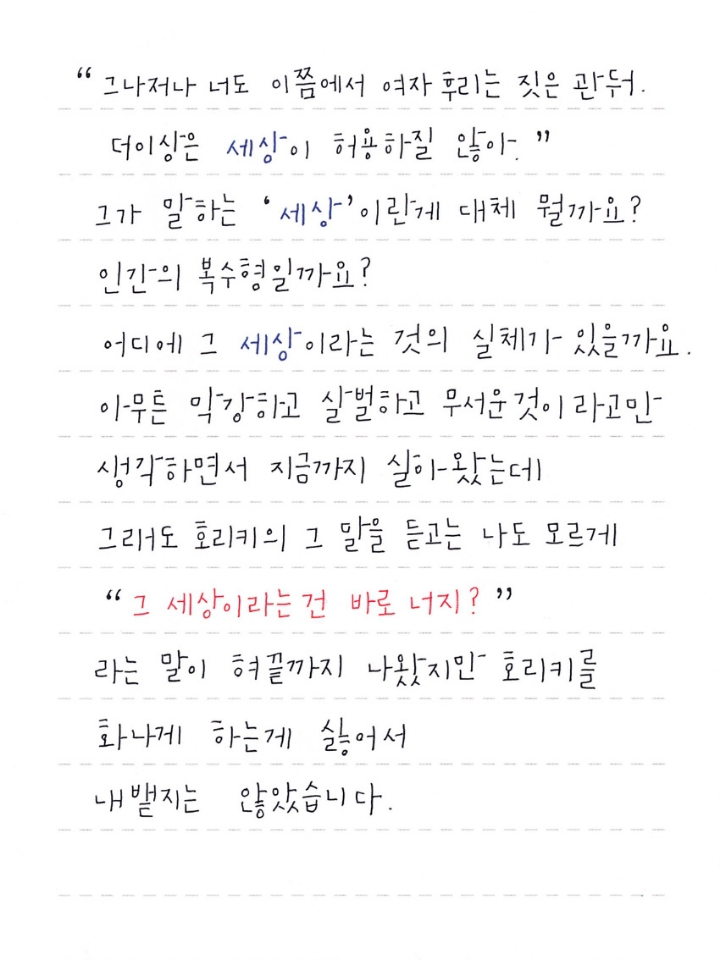 “ 그나저나 너도 이쯤에서 여자 후리는 짓은 관둬.
더이상은 세상이 허용하질 않아. ”
그가 말하는 ‘세상’이란게 대체 뭘까요?
인간의 복수형일까요?
어디에 그 세상이라는 것의 실체가 있을까요.
아무튼 막강하고 살벌하고 무서운것이라고만
생각하면서 지금까지 살아왔는데
그래도 호리키의 그 말을 듣고는 나도 모르게
“ 그 세상이라는건 바로 너지? ”
라는 말이 혀끝까지 나왔지만 호리키를
화나게 하는게 싫어서
내뱉지는 않았습니다.